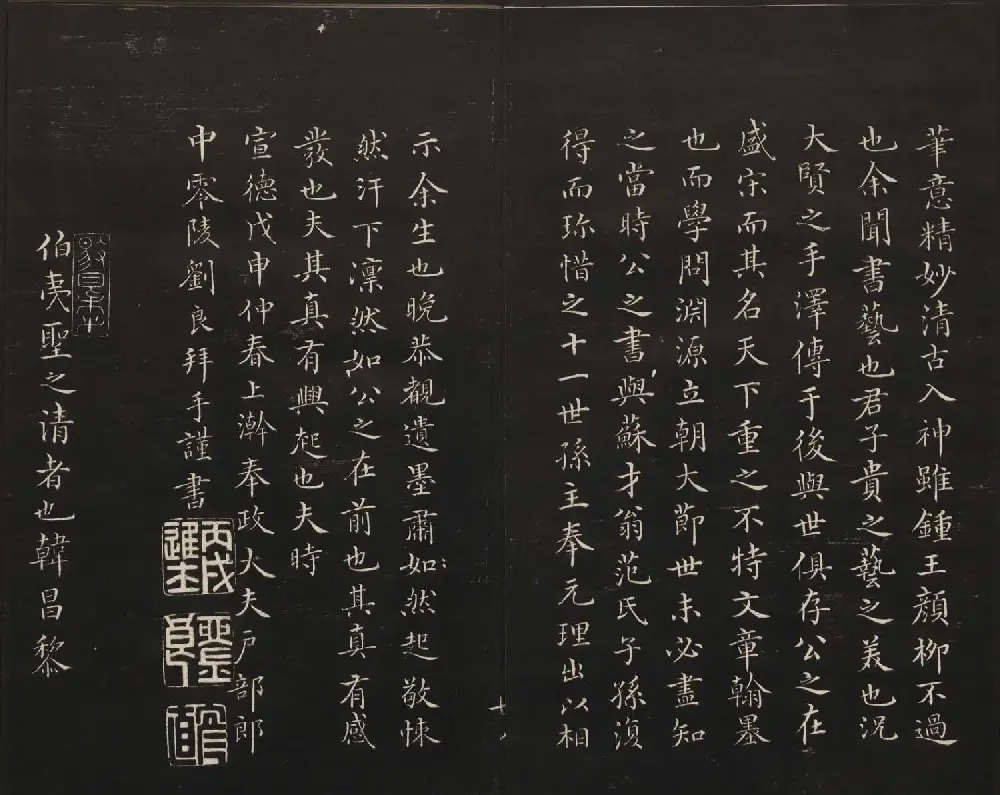 華意精妙清古入神雖鍾王顏柳不過
也余聞書藝也君子貴之藝之美也況
大賢之手澤傳于後與世俱存公之在
盛宋而其名天下重之不特文章翰墨
也而學問淵源立朝大節世未必盡知
之當時公之書與蘇才翁范氏子孫復
得而珎惜之十一世孫主奉元理出以相
示余生也晚恭觀遺墨肅如然起敬悚
然汗下凛然如公之在前也其真有感
發也夫其真有興起也夫時
宣德戊申仲春上澣奉政大夫戶部郎
中零陵劉良拜手謹書
丙戌進士
伯夷聖之清者也韓昌黎